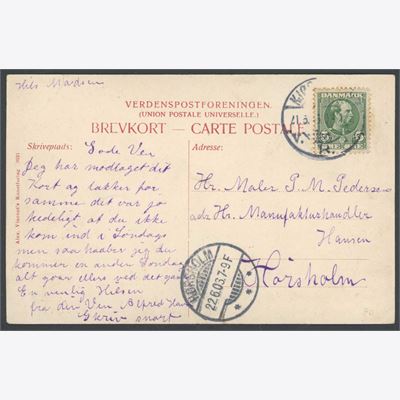 Hils Madsen
VERDENSPOSTFORENINGEN.
(UNION POSTALE UNIVERSELLE.)
BREVKORT — CARTE POSTALE
DANMARK
5 5
21.6.
Skriveplads:
Adresse:
Alex. Vincents Kunstforlag
Gode Ven
Jeg har modtaget dit
Kort og takker for
samme det var jo
kedeligt at du ikke
kom ind i Søndags
men saa haaber jeg du
kommer en anden Søndag
alt godt eller ved det
En venlig Hilsen
fra din Ven Alfred
Skriv snart
Hr. Maler P. M. Pedersen
adr. Hr. Manufakturhandler
Hansen
Hørsholm
HØRSHOLM
22.6.05.7-9F